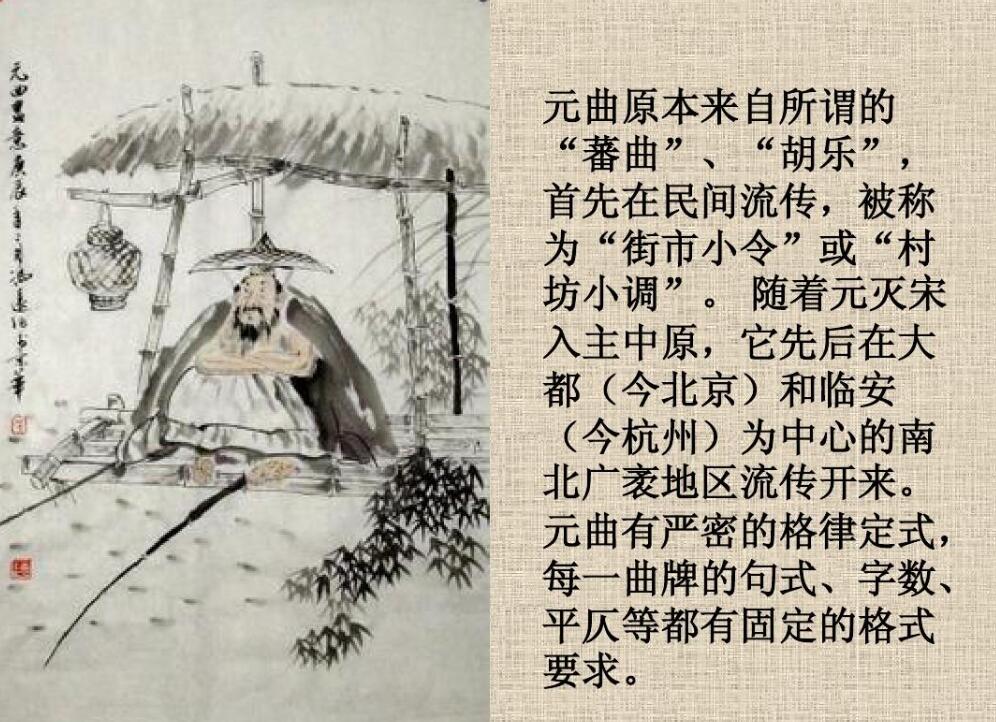 元曲原本来自所谓的
“蕃曲”、“胡乐”，
首先在民间流传，被称
为“街市小令”或“村
坊小调”。 随着元灭宋
入主中原，它先后在大
都（今北京）和临安
（今杭州）为中心的南
北广袤地区流传开来。
元曲有严密的格律定式，
每一曲牌的句式、字数、
平仄等都有固定的格式
要求。